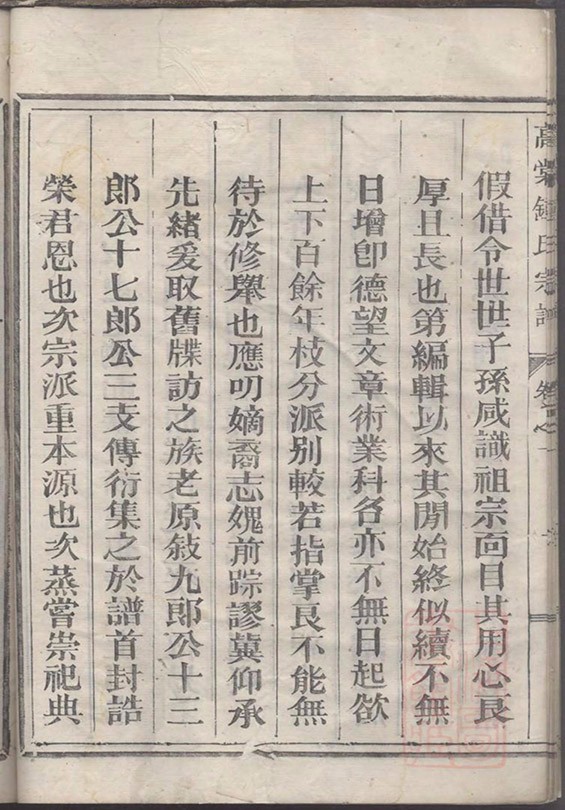 高棠鍾氏宗譜 卷之一
假借令世世子孫咸識祖宗面目其用心良
厚且長也第編輯以來其閒始終似續不無
日增卽德望文章術業科名亦不無日起欲
上下百餘年枝分派別較若指掌良不能無
待於修舉也應叨嫡裔志媿前踪謬冀仰承
先緒爰取舊牒訪之族老原敍九郎公十三
郎公十七郎公三支傳衍集之於譜首封誥
榮君恩也次宗派重本源也次蒸嘗崇祀典